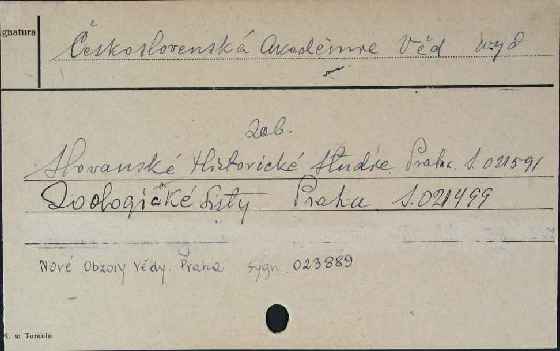 gnatura
Československá Akademie Věd wyd
Zob.
Slovanské Historické Studie. Praha. S.021591
Zoologické Listy Praha S.021499
Nové Obzory Vědy. Praha Sygn. 023889
w Toruniu